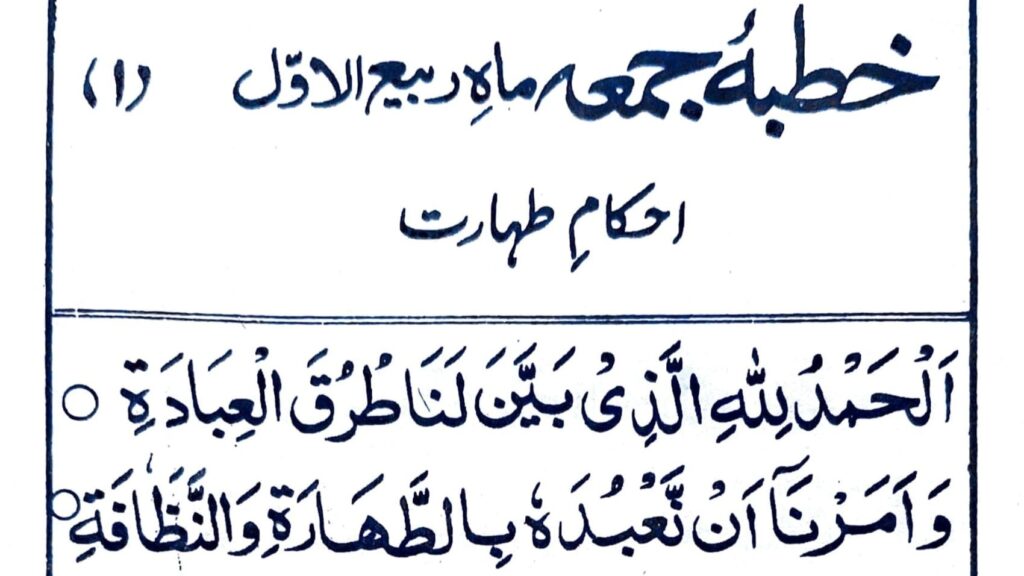 خطبۂ جمعہ ماہِ ربیع الاوّل (۱)
احکامِ طہارت
اَلْحَمْدُ لِلّٰهِ الَّذِىْ بَيَّنَ لَنَا طُرُقَ الْعِبَادَةِ ○
وَاَمَرْنَآ اَنْ نَّعْبُدَهٗ بِالطَّهَارَةِ وَالنَّظَافَةِ ○